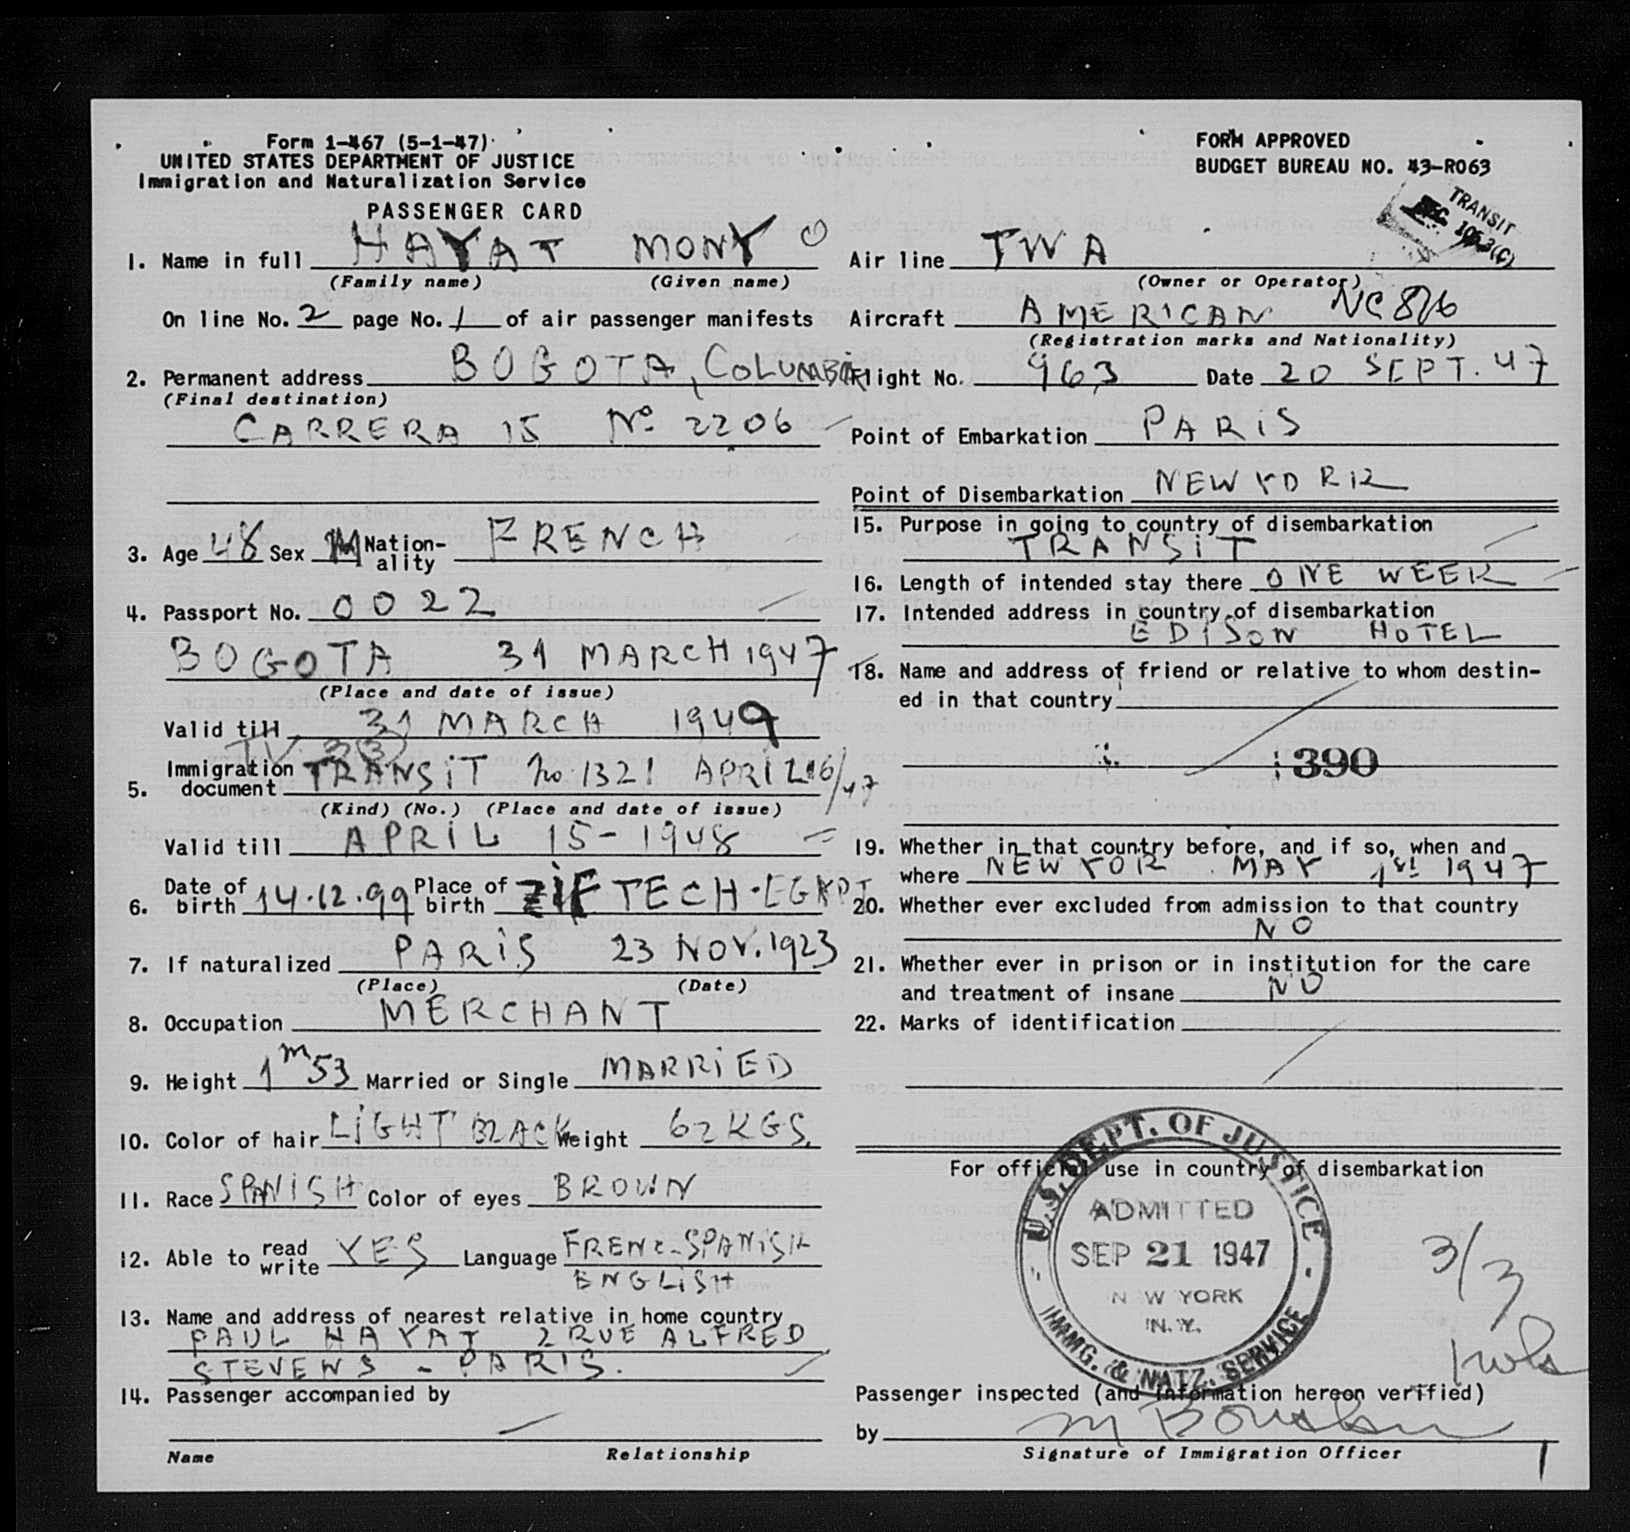 Form 1-467 (5-1-47)
UNITED STATES DEPARTMENT OF JUSTICE
Immigration and Naturalization Service
PASSENGER CARD
1. Name in full HAYAT MONY
(Family name) (Given name)
On line No. 2 page No. 1 of air passenger manifests
2. Permanent address BOGOTA, COLUMBIA
(Final destination)
CARRERA 15 No 2206
3. Age 48 Sex M Nation-ality FRENCH
4. Passport No. 0022
BOGOTA 31 MARCH 1947
(Place and date of issue)
Valid till 31 MARCH 1949
TV 3(3)
5. Immigration document TRANSIT No. 1321 APRIL 16/47
(Kind) (No.) (Place and date of issue)
Valid till APRIL 15-1948
6. Date of birth 14.12.99 Place of birth ZIFTECH-EGYPT
7. If naturalized PARIS 23 NOV. 1923
(Place) (Date)
8. Occupation MERCHANT
9. Height 1m53 Married or Single MARRIED
10. Color of hair LIGHT BLACK Weight 62 KGS.
11. Race SPANISH Color of eyes BROWN
12. Able to read write YES Language FRENC-SPANISH
ENGLISH
13. Name and address of nearest relative in home country
PAUL HAYAT 2 RUE ALFRED
STEVENS - PARIS.
14. Passenger accompanied by
Name Relationship
FORM APPROVED
BUDGET BUREAU NO. 43-R063
TRANSIT
Air line TWA
(Owner or Operator)
Aircraft AMERICAN
(Registration marks and Nationality)
Flight No. 963 Date 20 SEPT. 47
Point of Embarkation PARIS
Point of Disembarkation NEW YORK
15. Purpose in going to country of disembarkation
TRANSIT
16. Length of intended stay there ONE WEEK
17. Intended address in country of disembarkation
EDISON HOTEL
18. Name and address of friend or relative to whom destin-
ed in that country
390
19. Whether in that country before, and if so, when and
where NEW YOR MAY 1st 1947
20. Whether ever excluded from admission to that country
NO
21. Whether ever in prison or in institution for the care
and treatment of insane NO
22. Marks of identification
For official use in country of disembarkation
U.S. DEPT. OF JUSTICE
ADMITTED
SEP 21 1947
N W YORK
N.Y.
IMMG. & NATZ. SERVICE
3/3
Passenger inspected (and information hereon verified)
by
Signature of Immigration Officer